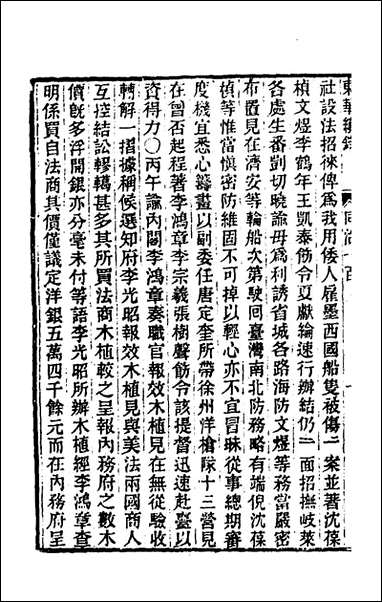 東華續錄　同治一百
社設法招徠俾爲我用倭人雇墨西國船隻被傷一案並著沈葆
楨文煜李鶴年王凱泰飭令夏獻綸速行辦結仍一面招撫岐萊
各處生番剴切曉諭毋爲利誘省城各路海防文煜等務當嚴密
布置見在濟安等輪船次第駛回臺灣南北防務略有端倪沈葆
楨等惟當愼密防維固不可掉以輕心亦不宜冒昧從事總期審
度機宜悉心籌畫以副委任唐定奎所帶徐州洋槍隊十三營見
在曾否起程著李鴻章李宗羲張樹聲飭令該提督迅速赴臺以
資得力〇丙午諭內閣李鴻章奏職官報效木植見在無從驗收
轉解一摺據稱候選知府李光昭報效木植見與美法兩國商人
互控結訟轇轕甚多其所買法商木植較之呈報內務府之數木
價旣多浮開銀亦分毫未付等語李光昭所辦木植經李鴻章查
明係買自法商其價僅議定洋銀五萬四千餘元而在內務府呈